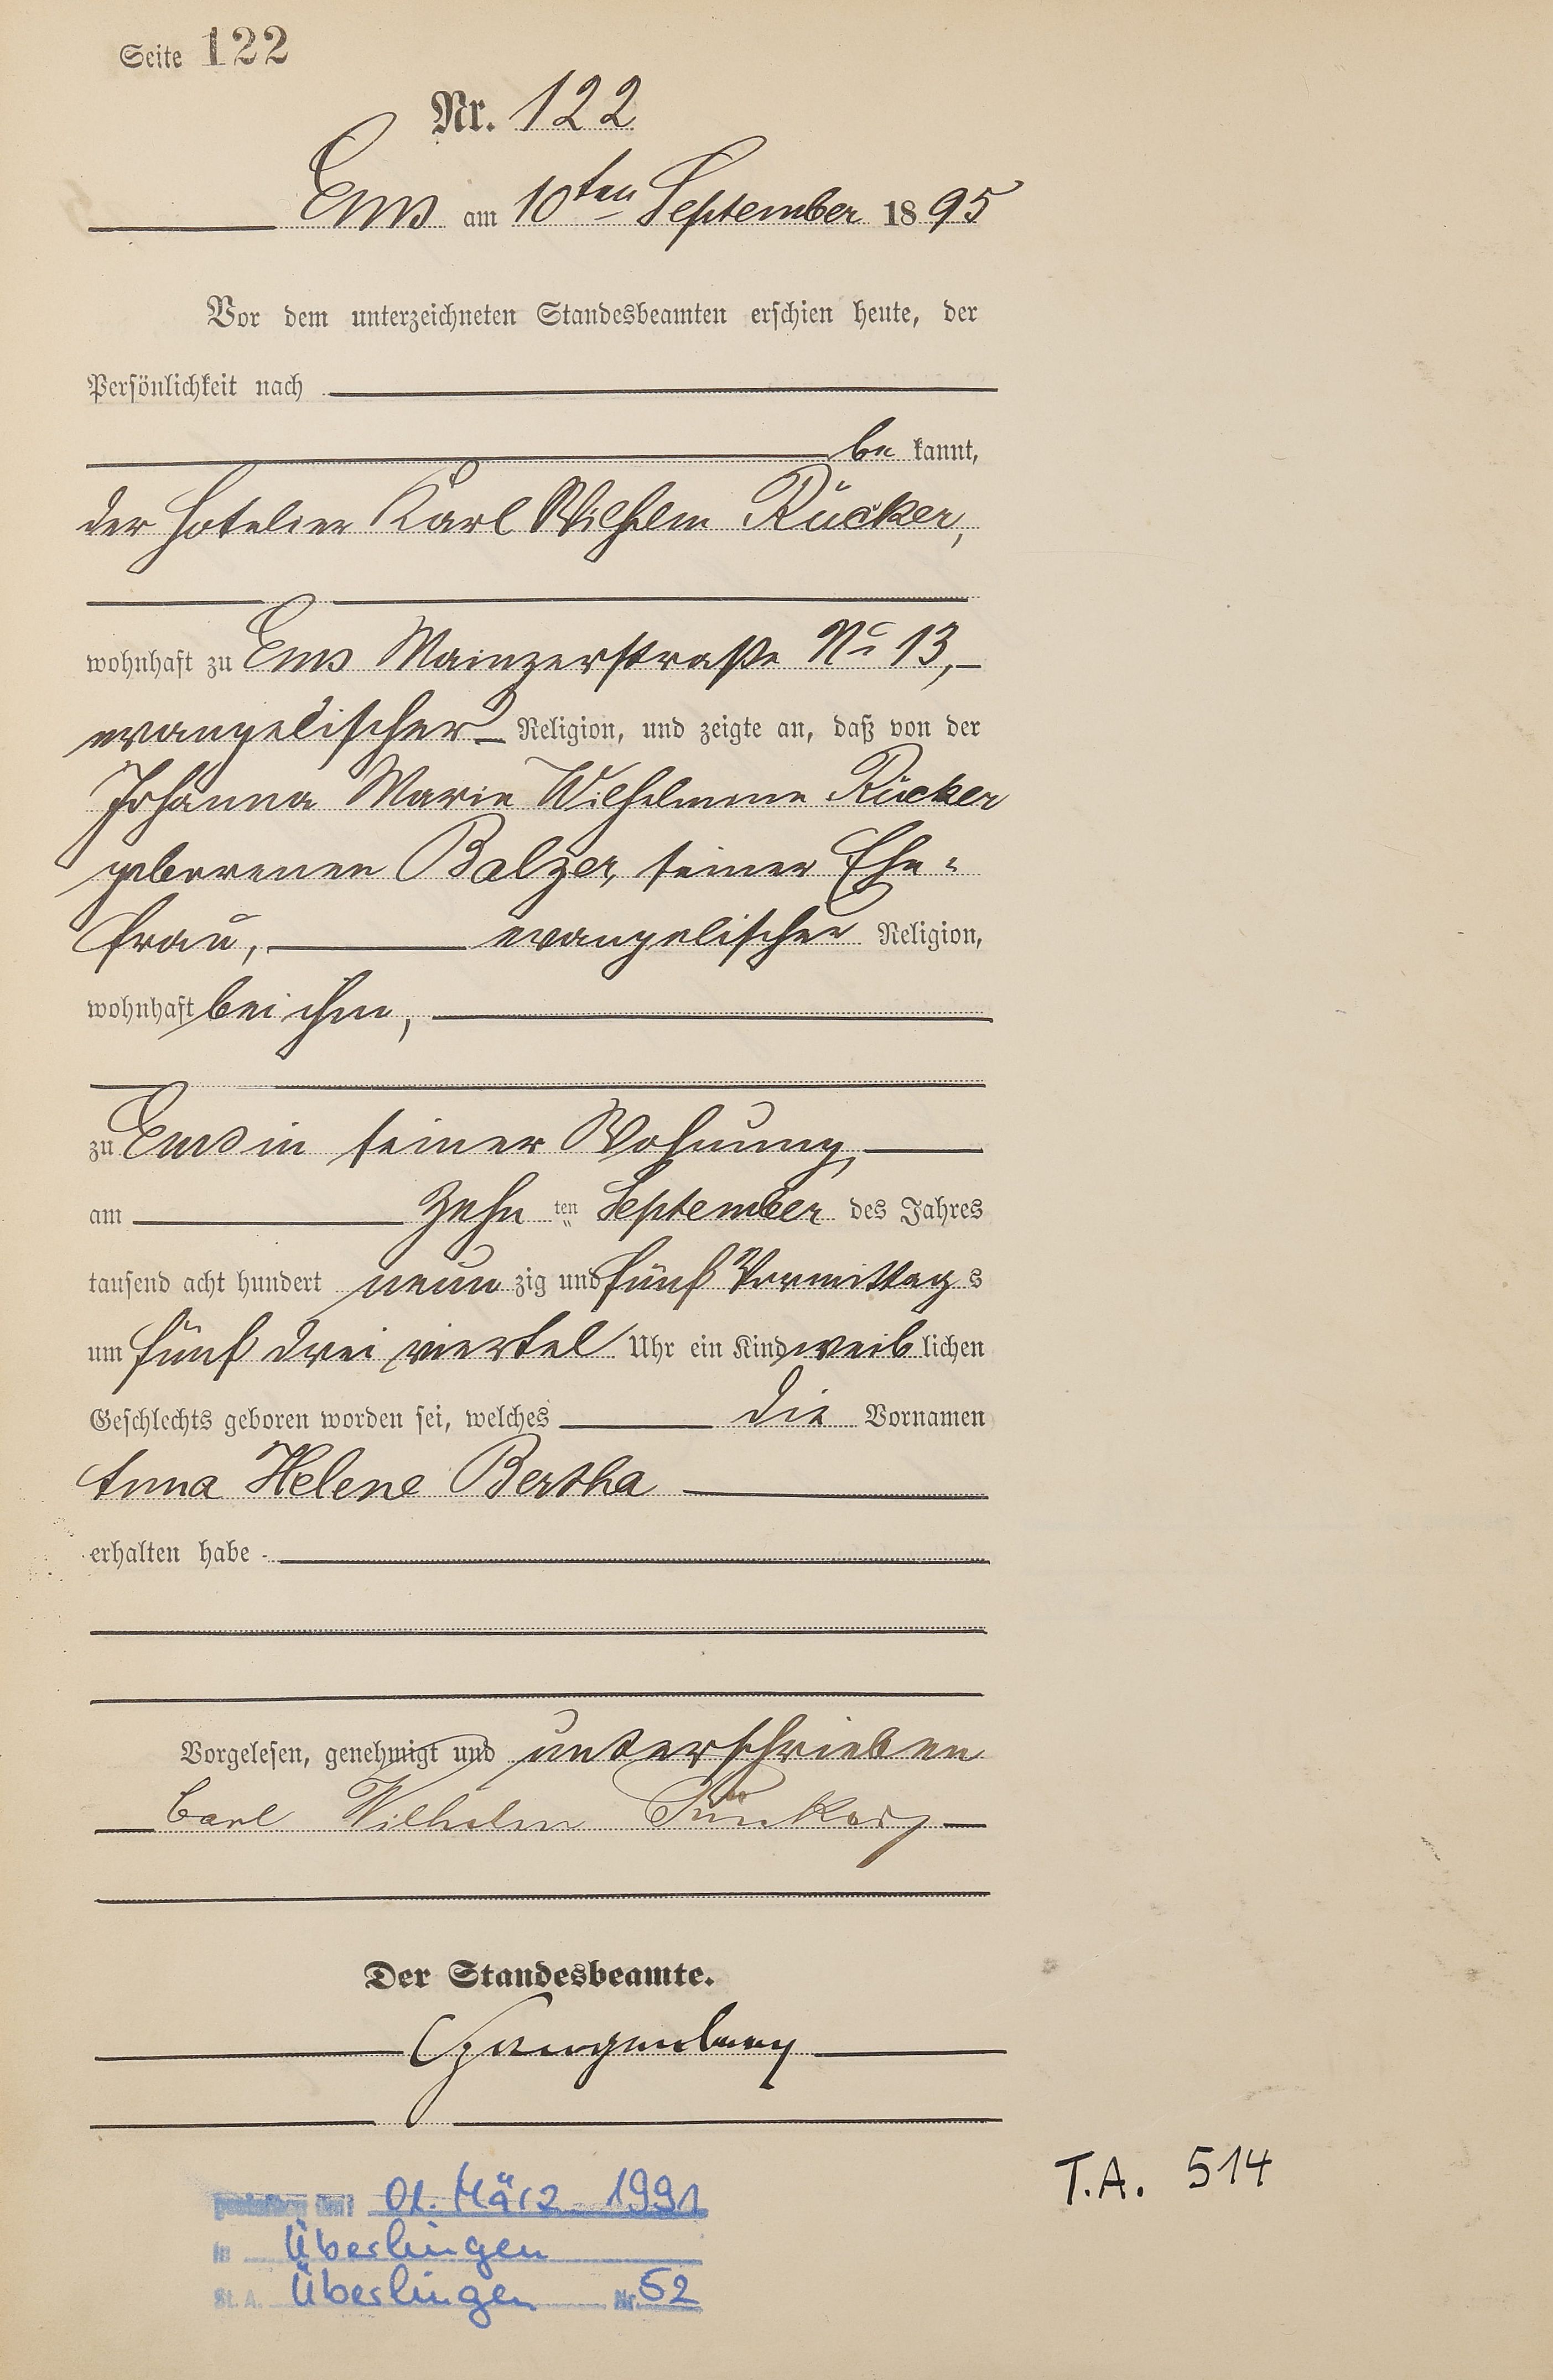 Seite 122
Nr. 122
Ems am 10ten September 1895
Vor dem unterzeichneten Standesbeamten erschien heute, der
Persönlichkeit nach
be kannt,
der Hotelier Karl Wilhelm Rücker,
wohnhaft zu Ems Mainzerstraße No 13,
evangelischer Religion, und zeigte an, daß von der
Johanna Marie Wilhelmine Rücker
geborenen Balzer, seiner Ehe-
frau, evangelischer Religion,
wohnhaft bei ihm,
zu Ems in seiner Wohnung
am zehn ten September des Jahres
tausend acht hundert neun zig und fünf Vormittags
um fünf drei viertel Uhr ein Kind weiblichen
Geschlechts geboren worden sei, welches die Vornamen
Anna Helene Bertha
erhalten habe
Vorgelesen, genehmigt und unterschrieben
Carl Wilhelm Rücker
Der Standesbeamte.
01. März 1991
in Überlingen
St. A. Überlingen Nr. 52
T.A. 514